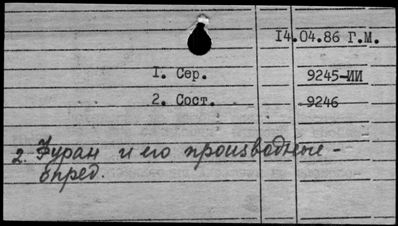 14.04.86 Г.М.
1. Сер. 9245-ИИ
2. Сост. 9246
2. Фуран и его производные -
опред.